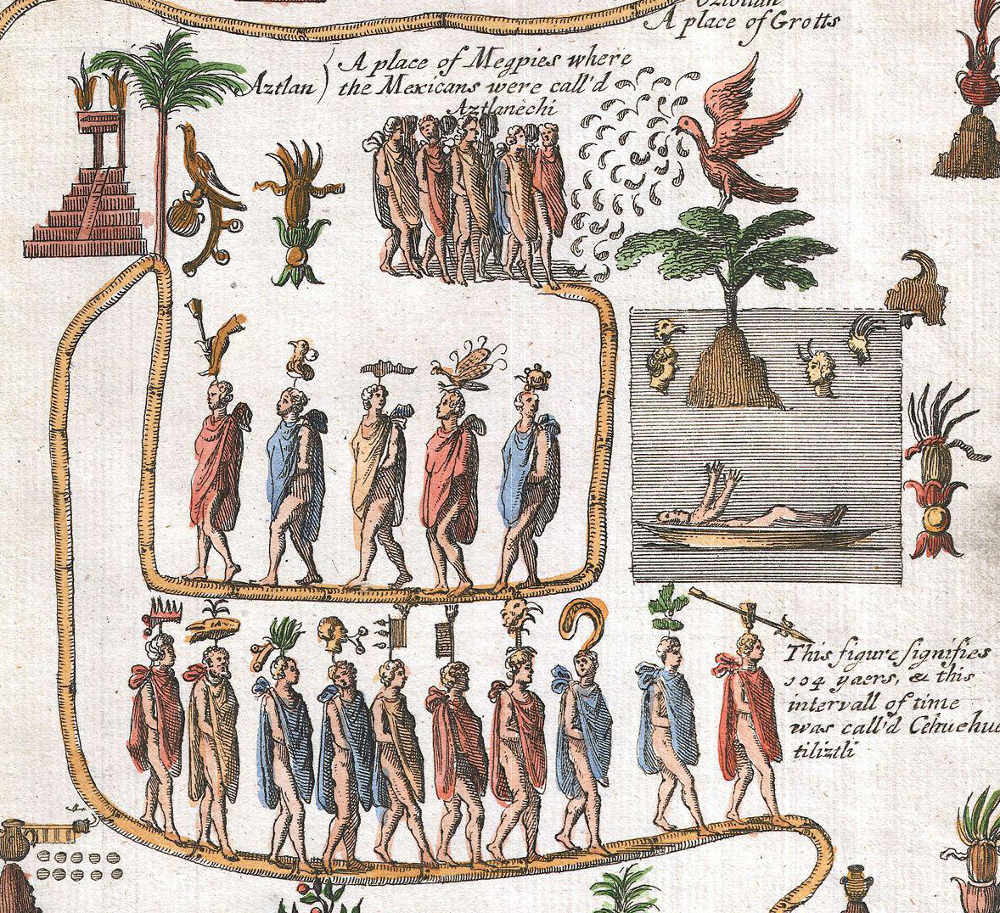 A place of Grotts
Aztlan) A place of Megpies where
the Mexicans were call'd
Aztlanechi
This figure signifies
104 yaers, & this
intervall of time
was call'd Cehuehue
tiliztli